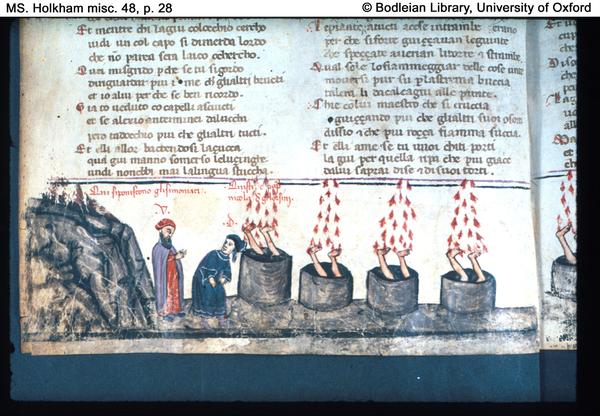 MS. Holkham misc. 48, p. 28
© Bodleian Library, University of Oxford
Et mentre chi lagiu colocchio cercho
vidi un col capo si dimerda lordo
che no parea sera laico ochercho.
misgrido p che se tu sigordo
piu me glialtri brutti
et io alui per che se ben ricordo.
Gia to veduto co capelli asciucti
et se alexio anterminei dalucchi
pero tadocchio piu che glialtri tucti.
Et elli allor bactendosi lacucca
qua giu manno somerso lelusinghe
undi nonebbi mai lalingua stuccha.
piante atucti accese intrambe
per che siforte guiççavan legiunte
che speççate averian litorte e strambe
Qual sole lo fiammeggiar delle cose unte
moversi pur su p lastrema buccia
li dacalcagni alle punte.
Chie colui maestro che si cruccia
guiççando piu che glialtri suoi
dissio e che piu roçça fiamma succia.
Et elli ame se tu vuoi chiti porti
la giu per quella ripa che piu giace
dalui saprai dise e di suoi torti.
Qui siponiscono glisimoniaci.
V.
D.